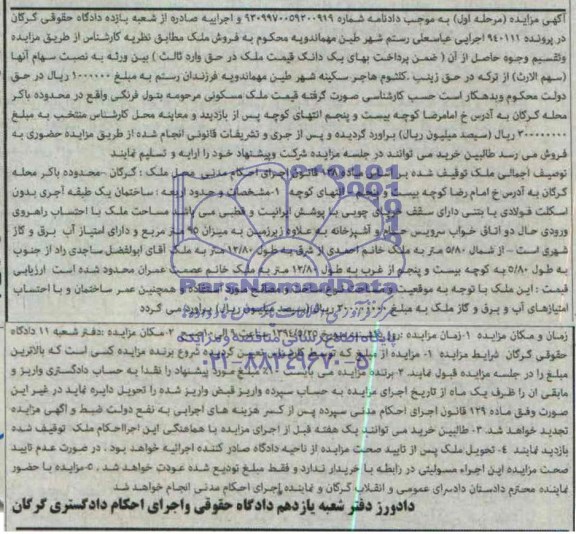 آگهی مزایده (مرحله اول) به موجب دادنامه شماره ۹۳۰۹۹۷۰۰۵۹۲۰۰۹۱۹ و اجراییه صادره از شعبه یازده دادگاه حقوقی گرگان
در پرونده ۹۴۰۱۱۱ اجرایی عباسعلی رستم شهر طین مهماندویه محکوم به فروش ملک مطابق نظریه کارشناس از طریق مزایده
وتقسیم وجوه حاصل از آن ( ضمن پرداخت بهای یک دانگ قیمت ملک در حق وارث ثالث ) بین ورثه به نسبت سهام آنها
(سهم الارث) از ترکه در حق زینب .کلثوم هاجر سکینه شهر طین مهماندویه فرزندان رستم به مبلغ ۱۰۰۰۰۰۰ ریال در حق
دولت محکوم وبدهکار است حسب کارشناسی صورت گرفته قیمت ملک مسکونی مرحومه بتول فرنگی واقع در محدوده باکر
محله گرگان به آدرس خ امامرضا کوچه بیست و پنجم انتهای کوچه پس از بازدید و معاینه محل کارشناس منتخب به مبلغ
۳۰۰۰۰۰۰۰۰ ریال (سیصد میلیون ریال) براورد گردیده و پس از جری و تشریفات قانونی انجام شده از طریق مزایده حضوری به
فروش می رسد طالبین خرید می توانند در جلسه مزایده شرکت وپیشنهاد خود را ارایه و تسلیم نمایند
توصیف اجمالی ملک توقیف شده قانون اجرای احکام مدنی محل ملک : گرگان -محدوده باکر محله
گرگان به آدرس خ امام رضا کوچه بیست و پنجم - انتهای کوچه ۱-مشخصات و حدود اربعه : ساختمان یک طبقه آجری بدون
اسکلت فولادی یا بتنی دارای سقف چوبی با پوشش ایرانیت و قطبی می باشد مساحت ملک با احتساب راهروی
ورودی حال دو اتاق خواب سرویس حمام و آشپزخانه به علاوه زیرزمین به میزان ۹۵ متر مربع و دارای امتیاز آب برق و گاز
شهری است - از شمال ۵/۸۰ متر به ملک خانم احمدی از شرق به طول ۱۳/۸۰ متر به ملک آقای ابوالفضل ساجدی راد از جنوب
به طول ۵/۸۰ به کوچه بیست و پنجم از غرب به طول ۱۳/۸ متر به ملک خانم عصمت عمران محدود شده است ارزیابی
قیمت : این ملک با توجه به موقعیت و همچنین عمر ساختمان و با احتساب
امتیازهای آب و برق و گاز ملک به مبلغ ریال برآورد می گردد
زمان و مکان مزایده ۱-زمان مزایده ۱۳۹۴/۵/۲۵ ۲-مکان مزایده :دفتر شعبه ۱۱ دادگاه
حقوقی گرگان شرایط مزایده ۱- مزایده از مبلغ که توسط کارشناس تعیین گردیده شروع برنده مزایده کسی است که بالاترین
مبلغ را در جلسه مزایده قبول نمایند ۲-برنده مزایده می بایست مبلغ مورد پیشنهاد را نقدا به حساب دادگستری واریز و
مابقی آن را ظرف یک ماه از تاریخ اجرای مزایده به حساب سپرده واریز قبض واریز شده را تحویل دایره نماید در غیر این
صورت وفق ماده ۱۲۹ قانون اجرای احکام مدنی سپرده پس از کسر هزینه های اجرایی به نفع دولت ضبط و آگهی مزایده
تجدید خواهد شد ۳- طالبین خرید می توانند یک هفته قبل از اجرای مزایده با هماهنگی این اجرااحکام ملک توقیف شده
بازدید نمایند ۴- تحویل ملک پس از تایید صحت مزایده از ناحیه دادگاه صادر کننده اجرائیه خواهد بود . در صورت عدم تایید
صحت مزایده این اجراء مسولیتی در رابطه با خریدار ندارد و فقط مبلغ تودیع شده عودت خواهد شد . ۵-مزایده با حضور
نماینده محترم دادستان دادسرای عمومی و انقلاب گرگان و نماینده اجرای احکام مدنی انجام خواهد شد
دادورز دفتر شعبه یازدهم دادگاه حقوقی واجرای احکام دادگستری گرگان
ParsNamadData
پایگاه اطلاع رسانی مناقصه و مزایده
۰۲۱-۸۸۳۴۹۶۷۰-۵